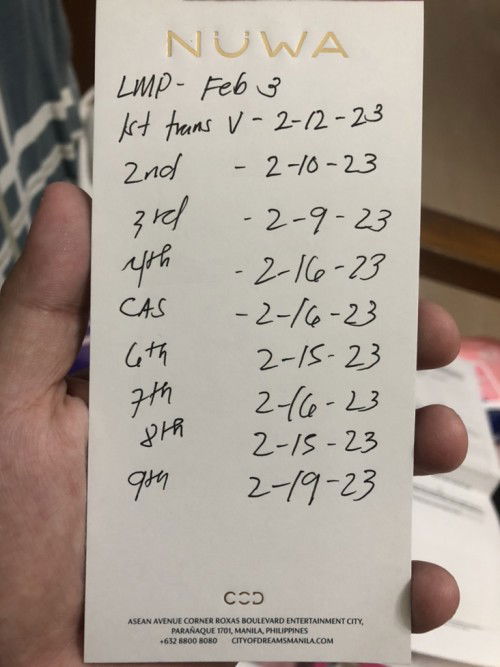 NÜWA
LMP - Feb 3
1st trans V - 2-12-23
2nd - 2-10-23
3rd - 2-9-23
4th - 2-16-23
CAS - 2-16-23
6th 2-15-23
7th 2-16-23
8th 2-15-23
9th 2-19-23
COD
ASEAN AVENUE CORNER ROXAS BOULEVARD ENTERTAINMENT CITY,
PARAÑAQUE 1701, MANILA, PHILIPPINES
+632 8800 8080 CITYOFDREAMSMANILA.COM